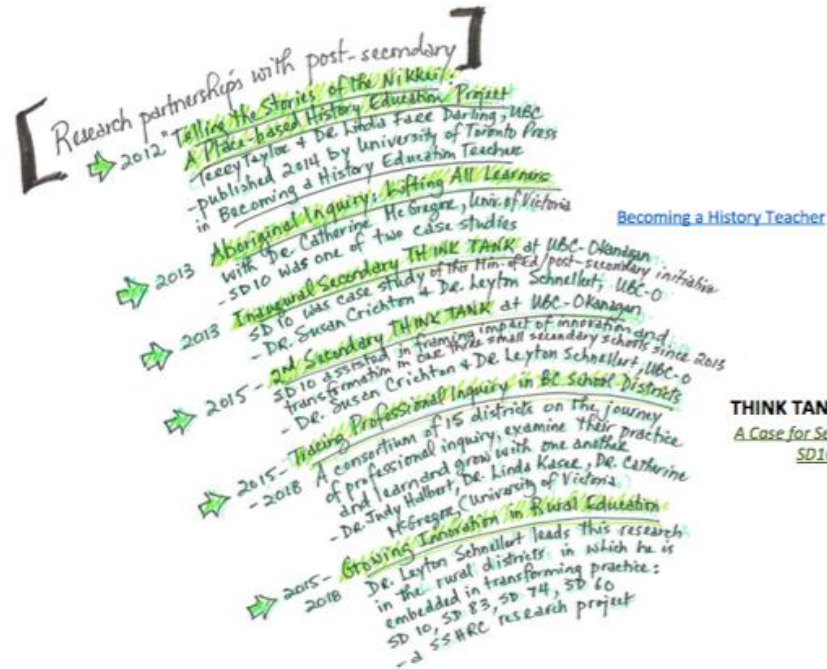 [Research partnerships with post-secondary]
2012 "Telling the Stories of the Nikkei:
A Place-based History Education Project
Terry Taylor & Dr. Linda Farr Darling, UBC
- published 2014 by University of Toronto Press
in Becoming a History Education Teacher
2013 Aboriginal Inquiry: Lifting All Learners
with Dr. Catherine McGregor, Univ. of Victoria
- SD10 was one of two case studies
2013 Inaugural Secondary THINK TANK at UBC-Okanagan
SD10 was case study of this Min. of Ed/post-secondary initiative
- DR. Susan Crichton & Dr. Leyton Schnellert, UBC-O
2015 - 2nd Secondary THINK TANK at UBC-Okanagan
SD10 assisted in framing impact of innovation and
transformation in our three small secondary schools since 2013
- DR. Susen Crichton & DR. Leyton Schnellert, UBC-O
2015- Tracing Professional Inquiry in BC School Districts
- 2018 A consortium of 15 districts on the journey
of professional inquiry, examine their practice
and learn and grow with one another
- DR. Judy Halbert, DR. Linda Kaser, DR. Catherine
McGregor, (University of Victoria)
2015- Growing Innovation in Rural Education
2018 DR. Leyton Schnellert leads this research
in the rural districts in which he is
embedded in transforming practice:
SD 10, SD 83, SD 74, SD 60
- a SSHRC research project
Becoming a History Teacher
THINK TAN
A Case for Se
SD10